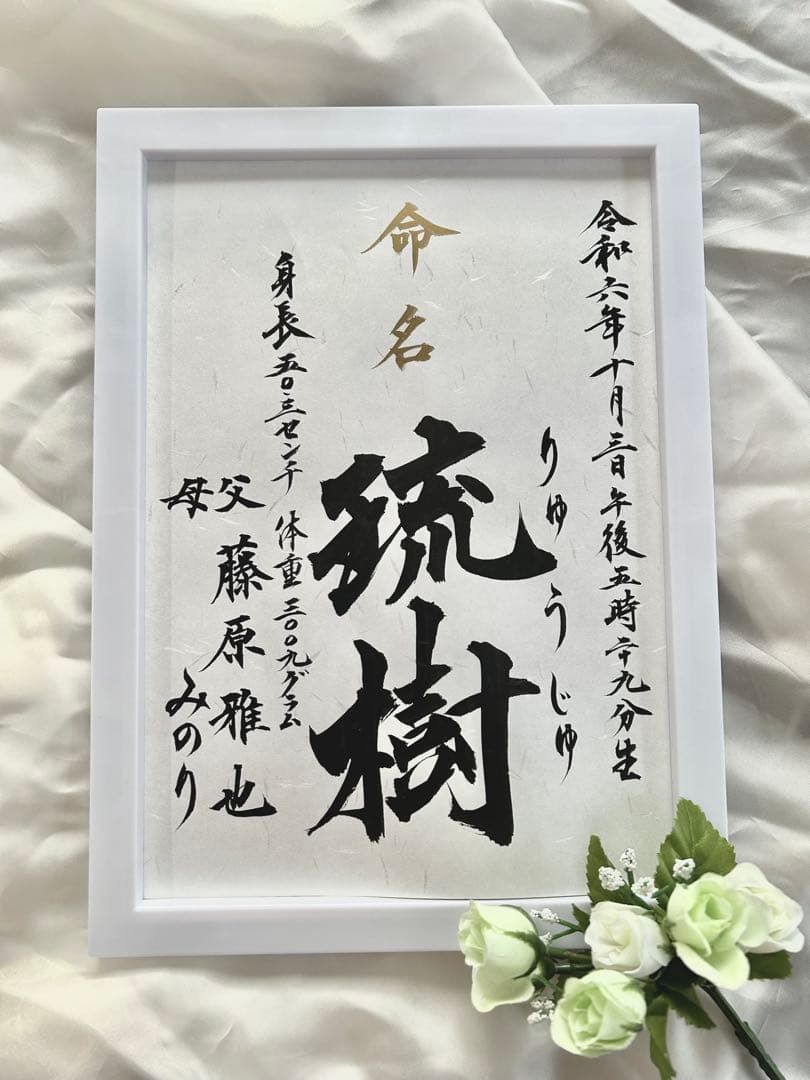 令和六年十月三日午後五時二十九分生
命名
りゅうじゅ
琉樹
身長五〇.三センチ 体重三〇〇九グラム
父 藤原雅也
母 みのり